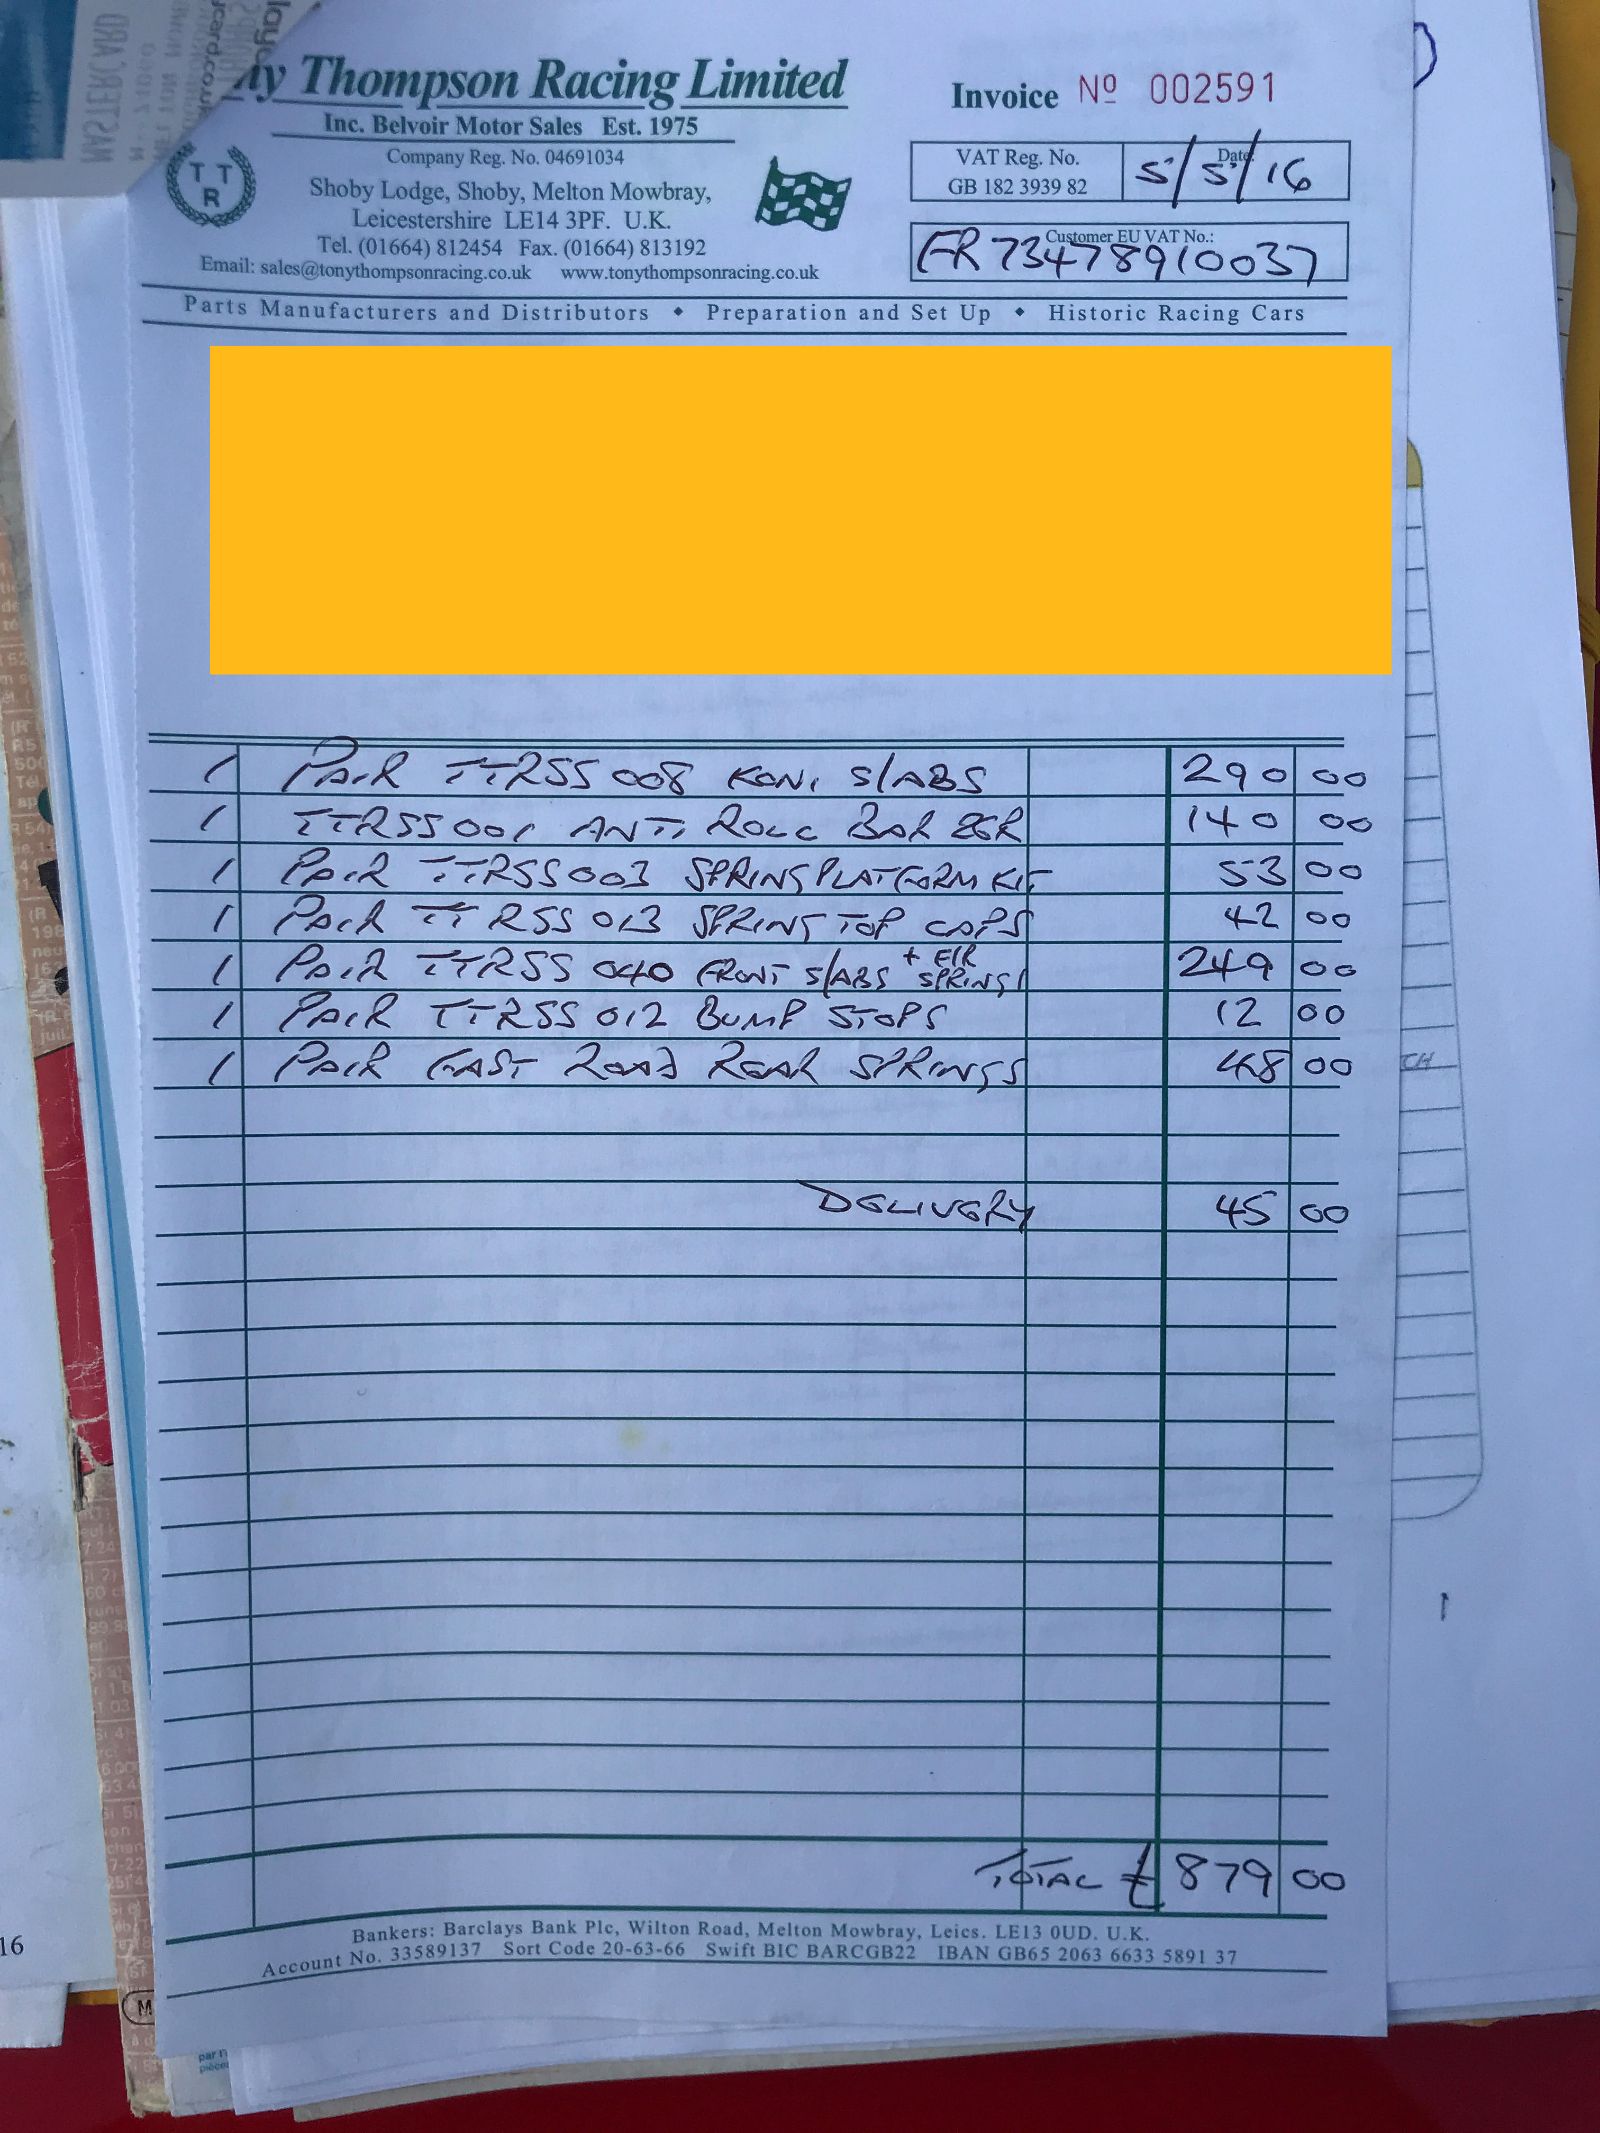 ny Thompson Racing Limited
Inc. Belvoir Motor Sales Est. 1975
Company Reg. No. 04691034
TTR
Shoby Lodge, Shoby, Melton Mowbray,
Leicestershire LE14 3PF. U.K.
Tel. (01664) 812454 Fax. (01664) 813192
Email: sales@tonythompsonracing.co.uk www.tonythompsonracing.co.uk
Invoice Nº 002591
VAT Reg. No.
GB 182 3939 82
Date:
5/5/16
Customer EU VAT No.:
FR73478910037
Parts Manufacturers and Distributors • Preparation and Set Up • Historic Racing Cars
1 PAIR TTRSS 008 KONI S/ABS 290 00
1 TTRSS 001 ANTI ROLL BAR 140 00
1 PAIR TTRSS 003 SPRING PLATFORM KIT 53 00
1 PAIR TTRSS 013 SPRING TOP CAPS 42 00
1 PAIR TTRSS 040 FRONT S/ABS + F/R SPRINGS 249 00
1 PAIR TTRSS 012 BUMP STOPS 12 00
1 PAIR FAST ROAD REAR SPRINGS 48 00
DELIVERY 45 00
TOTAL £ 879 00
Bankers: Barclays Bank Plc, Wilton Road, Melton Mowbray, Leics. LE13 0UD. U.K.
Account No. 33589137 Sort Code 20-63-66 Swift BIC BARCGB22 IBAN GB65 2063 6633 5891 37
MASTERCARD
16